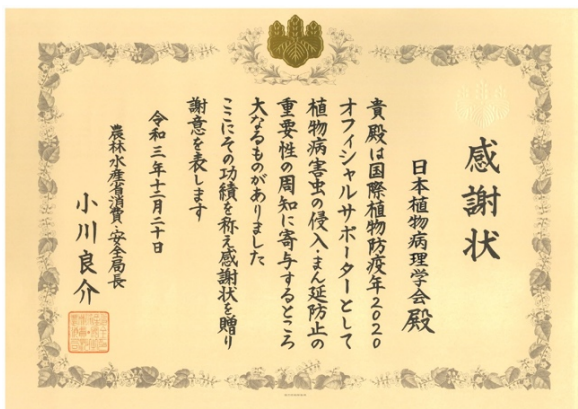 感謝状
日本植物病理学会殿
貴殿は国際植物防疫年2020
オフィシャルサポーターとして
植物病害虫の侵入・まん延防止の
重要性の周知に寄与するところ
大なるものがありました
ここにその功績を称え感謝状を贈り
謝意を表します
令和三年十二月二十日
農林水産省消費・安全局長
小川良介